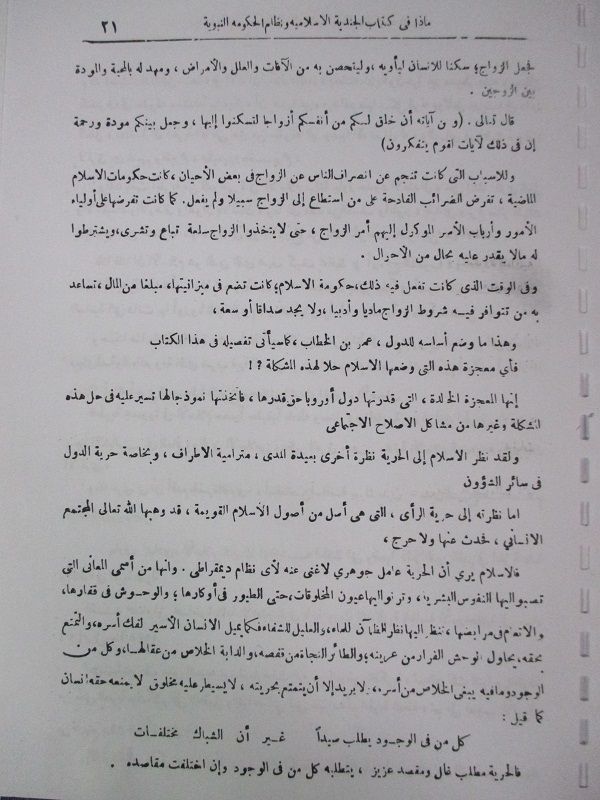 ماذا فى كتاب الجندية الاسلاميه ونظام الحكومه النبوية ٢١
فجعل الزواج؛ سكنا للانسان ليأويه، وليتحصن به من الآفات والعلل والأمراض، ومهد له بالمحبة والمودة
بين الزوجين .
قال تعالى . (ومن آياته أن خلق لكم من أنفسكم أزواجا لتسكنوا إليها ، وجعل بينكم مودة ورحمة
إن فى ذلك لآيات لقوم يتفكرون)
وللاسباب التى كانت تنجم عن انصراف الناس عن الزواج فى بعض الأحيان، كانت حكومات الاسلام
الماضية ، تفرض الضرائب الفادحة على من استطاع إلى الزواج سبيلا ولم يفعل. كما كانت تفرضها على أولياء
الأمور وأرباب الأسر الموكول إليهم أمر الزواج ، حتى لا يتخذوا الزواج سلعة تباع وتشرى، ويشترطوا
له مالا يقدر عليه بحال من الأحوال .
وفى الوقت الذى كانت تفعل فيه ذلك، حكومة الاسلام؛ كانت تضع فى ميزانيتها، مبلغا من المال، تساعد
به من تتوافر فيه شروط الزواج ماديا وأدبيا ، ولا يجد صداقا أو سعة ،
وهذا ما وضع أساسه للدول ، عمر بن الخطاب، كما سيأتى تفصيله فى هذا الكتاب
فأى معجزة هذه التى وضعها الاسلام حلا لهذه المشكلة ? !
إنها المعجزة الخالدة ، التى قدرتها دول أوروبا حق قدرها ، فاتخذتها نموذجا لها تسير عليه فى حل هذه
المشكلة وغيرها من مشاكل الاصلاح الاجتماعى
ولقد نظر الاسلام إلى الحرية نظرة أخرى بعيدة المدى ، مترامية الاطراف ، وبخاصة حرية الدول
فى سائر الشؤون
اما نظرته إلى حرية الرأى ، التى هى أصل من أصول الاسلام القويمة ، قد وهبها الله تعالى المجتمع
الانسانى ، فحدث عنها ولا حرج ،
فالاسلام يرى أن الحرية عامل جوهري لاغنى عنه لأى نظام ديمقراطى . وانها من أسمى المعانى التى
تصبو اليها النفوس البشرية، وترنو اليها عيون المخلوقات، حتى الطيور فى أوكارها؛ والوحوش فى قفارها،
والانعام فى مرابضها، تنظر اليها نظر الظمآن للماء، والعليل للشفاء فكما يميل الانسان الأسير لفك أسره، والتمتع
بحقه، يحاول الوحش الفرار من عرينه، والطائر النجاة من قفصه، والدابة الخلاص من عقالها، وكل من
الوجود ومافيه يبغى الخلاص من أسره، لا يريد إلا أن يتمتع بحريته ، لا يسيطر عليه مخلوق لا يمنعه حقه إنسان
كما قيل :
كل من فى الوجود يطلب صيداً غير أن الشباك مختلفات
فالحرية مطلب غال ومقصد عزيز ، يتطلبه كل من فى الوجود وإن اختلفت مقاصده .